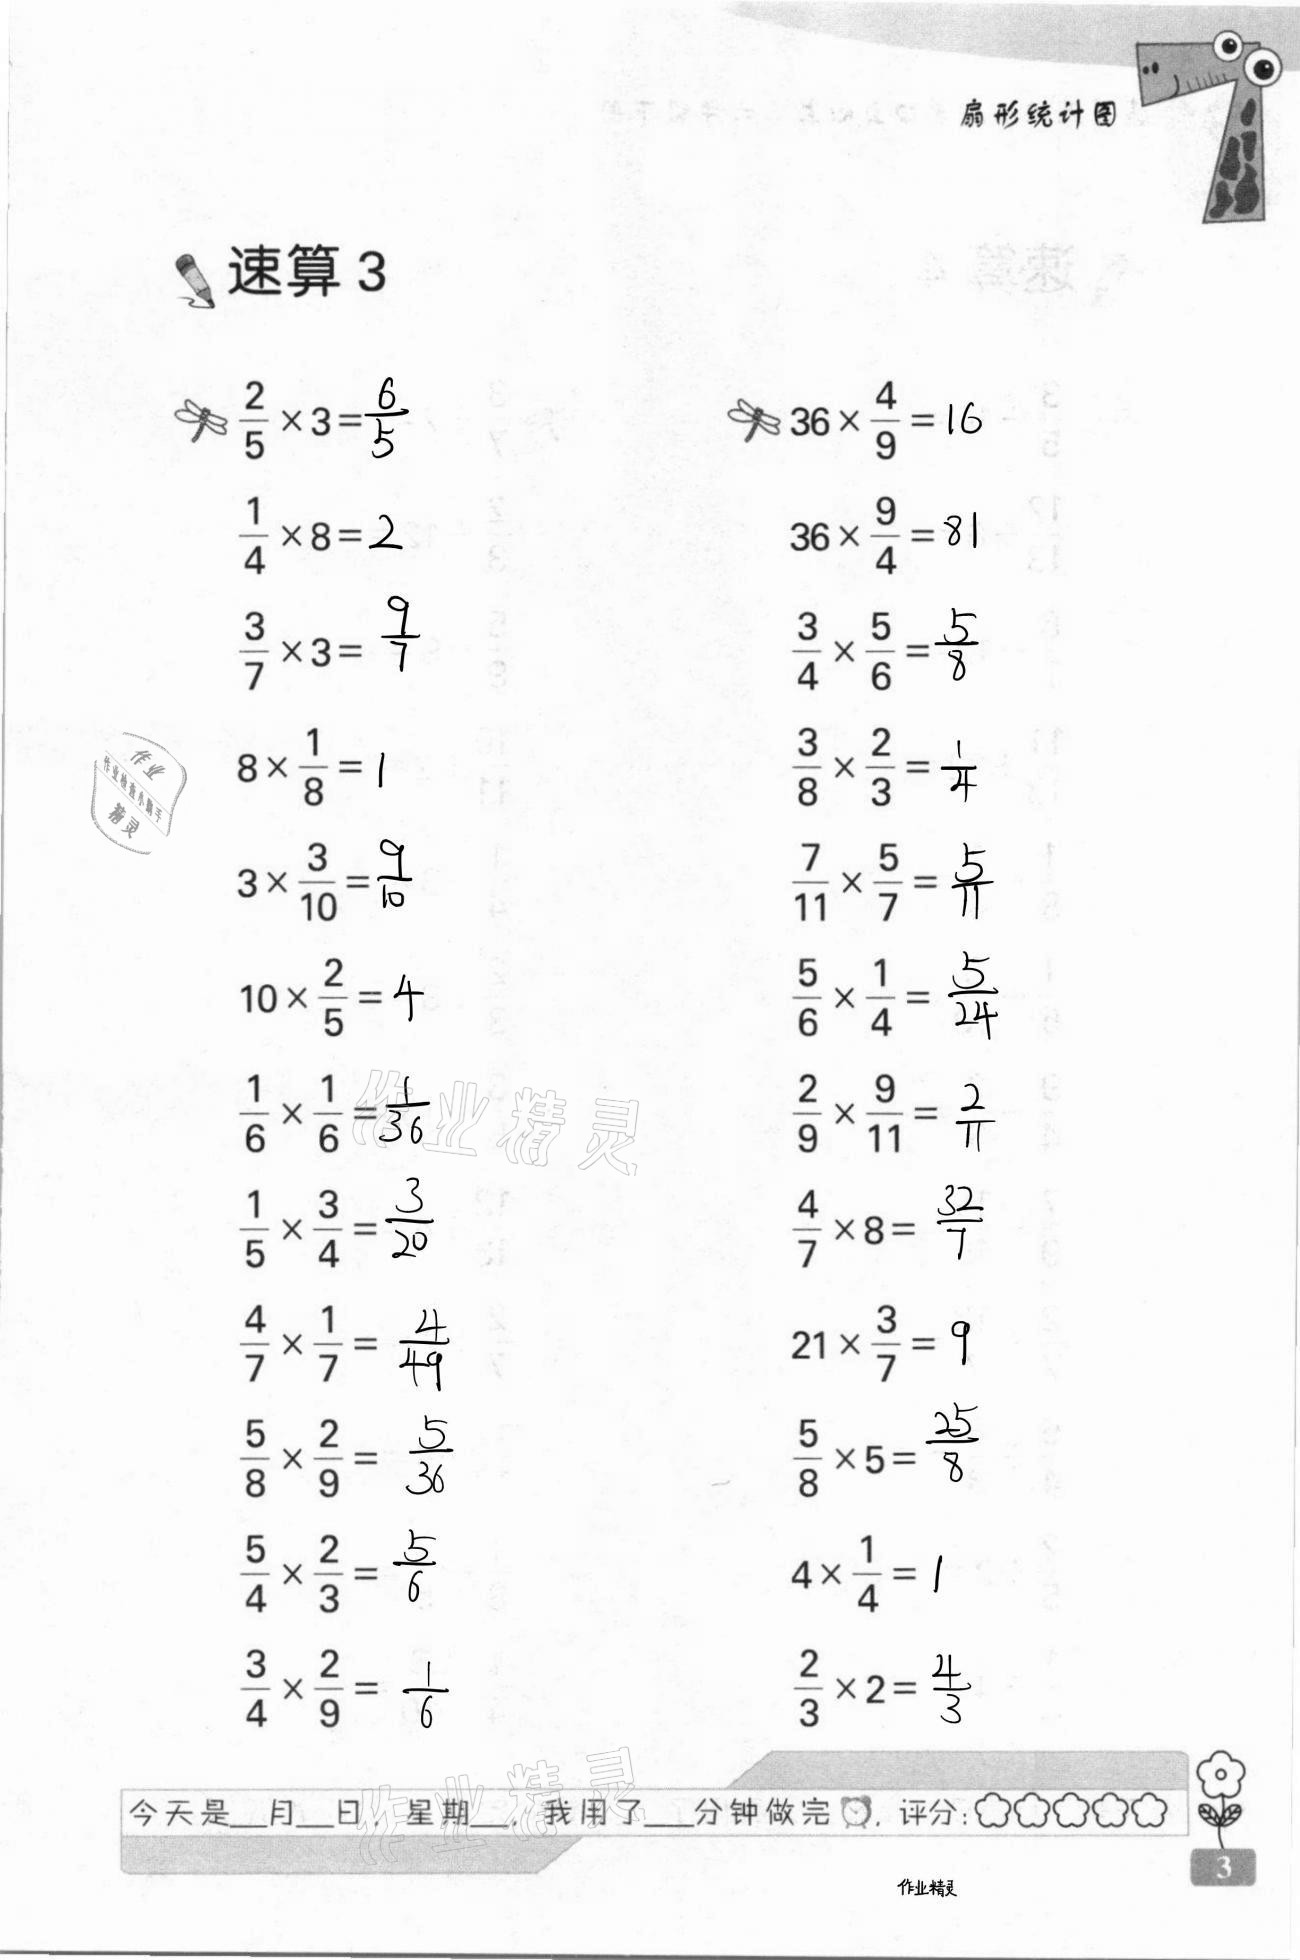 扇形统计图
速算 3
2/5 × 3 = 6/5
1/4 × 8 = 2
3/7 × 3 = 9/7
8 × 1/8 = 1
3 × 3/10 = 9/10
10 × 2/5 = 4
1/6 × 1/6 = 1/36
1/5 × 3/4 = 3/20
4/7 × 1/7 = 4/49
5/8 × 2/9 = 5/36
5/4 × 2/3 = 5/6
3/4 × 2/9 = 1/6
36 × 4/9 = 16
36 × 9/4 = 81
3/4 × 5/6 = 5/8
3/8 × 2/3 = 1/4
7/11 × 5/7 = 5/11
5/6 × 1/4 = 5/24
2/9 × 9/11 = 2/11
4/7 × 8 = 32/7
21 × 3/7 = 9
5/8 × 5 = 25/8
4 × 1/4 = 1
2/3 × 2 = 4/3
作业
作业检查小助手
精灵
作业精灵
作业精灵
今天是__月__日，星期__，我用了___分钟做完，评分：
3
作业精灵